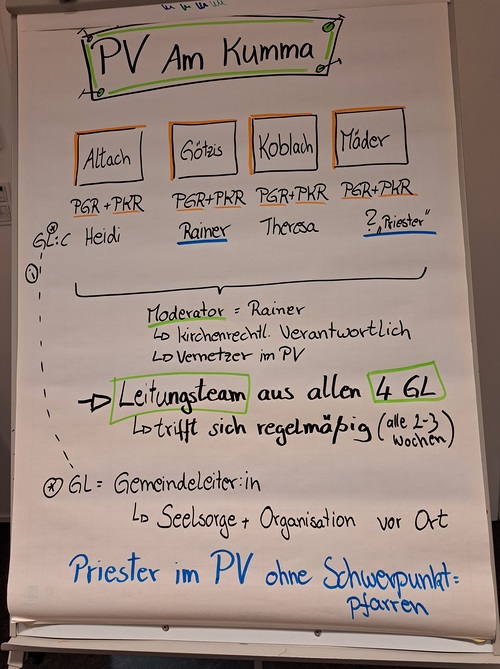 PV Am Kumma
Altach Götzis Koblach Mäder
PGR + PKR PGR+PKR PGR+PKR PGR+PKR
GL:c Heidi Rainer Theresa ? „Priester"
Moderator = Rainer
↳ kirchenrechtl. Verantwortlich
↳ Vernetzer im PV
→ Leitungsteam aus allen 4 GL
↳ trifft sich regelmäßig (alle 2-3
Wochen)
* GL = Gemeindeleiter:in
↳ Seelsorge + Organisation vor Ort
Priester im PV ohne Schwerpunkt=
pfarren